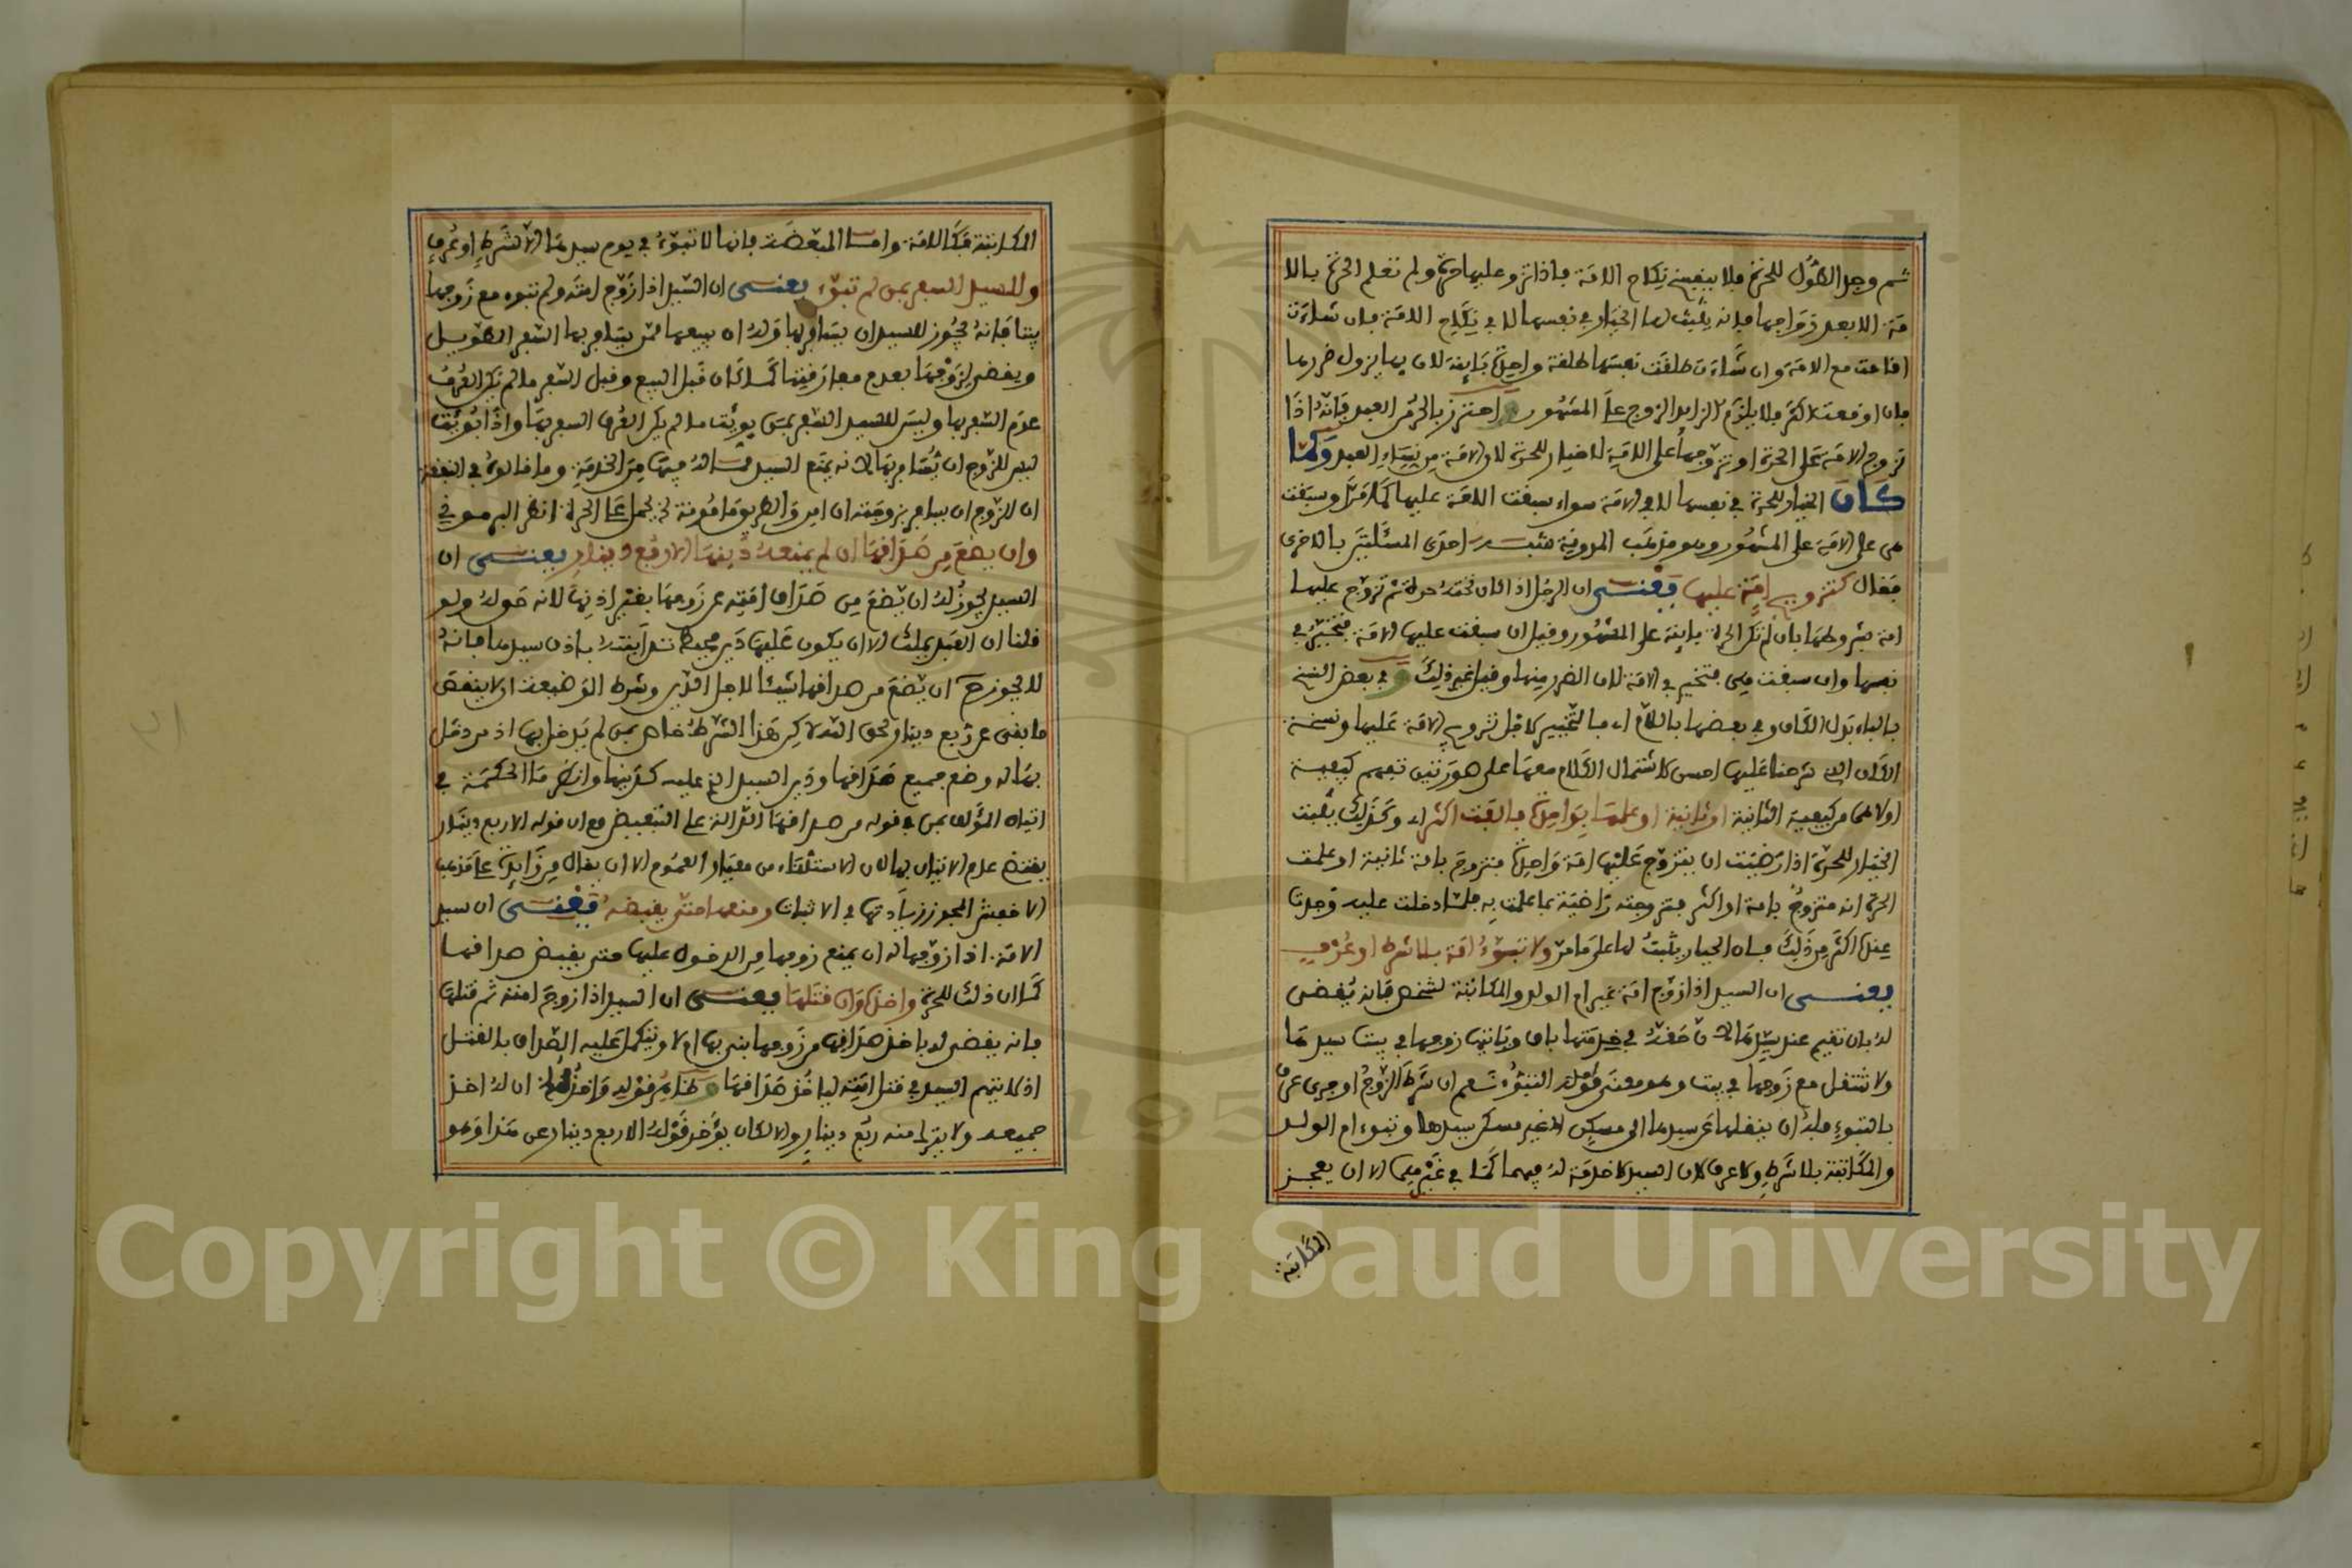 ثم وجد الطول للحرة فلا ينفسخ نكاح الامة فاذا تزوج عليها حرة ولم تعلم الحرة بالا
مة الا بعد زواجها فانه يثبت لها الخيار في نفسها لا في نكاح الامة فان شاءت
اقامت مع الامة وان شاءت طلقت نفسها طلقة واحدة بائنة لان بها يزول ضررها
فان اوقعت اكثر فلا يلزم الزايد الزوج على المشهور واحترز بالحر من العبد فانه اذا
تزوج الامة على الحرة او تزوجها على الامة لا خيار للحرة لان الامة من نساء العبد ولما
كان الخيار للحرة في نفسها لا في الامة سواء سبقت الامة عليها كما مر او سبقت
هي على الامة على المشهور وهو مذهب المدونة شبه احدى المسئلتين بالاخرى
فقال كتزويج امة عليها يعني ان الرجل اذا كان تحته حرة ثم تزوج عليها
امة بشروطها بان لم تكن الحرة بائنة على المشهور وقيل ان سبقت عليها الامة فتخير في
نفسها وان سبقت هي فتخير في الامة لان الضرر منها وقيل غير ذلك و في بعض النسخ
بالباء بدل الكاف وفي بعضها باللام اي فالتخيير لاجل تزويج الامة عليها ونسخة
الكاف التي شرحنا عليها احسن لاشتمال الكلام معها على صورتين تفهم كيفية
اولاهما من كيفية الثانية او ثانية او علمت بواحدة فالفت اكثر اي وكذلك يثبت
الخيار للحرة اذا رضيت ان يتزوج عليها امة واحدة فتزوج بامة ثانية او علمت
الحرة انه متزوج بامة او اكثر فتزوجته راضية بما علمت به فلما دخلت عليه وجدت
عنده اكثر من ذلك فان الخيار يثبت لها على ما مر ولا تبوء امة بلا شرط او عرف
يعني ان السيد اذا زوج امة غير ام الولد والمكاتبة لشخص فانه يقضى
له بان تقيم عند سيدها لان حقه في خدمتها باق وياتيها زوجها في بيت سيدها
ولا تستقل مع زوجها في بيت وهو معنى قوله التبوء نعم ان شرط الزوج او جرى عرف
بالتبوء فله ان ينقلها عن سيدها الى مسكن غير مسكن سيدها وتبوء ام الولد
والمكاتبة بلا شرط ولا عرف لان السيد لا خدمة له فيهما كما في غيرهما الا ان يعجز
المكاتبة
المكاتبة فكالامة واما المبعضة فانها لا تبوء في يوم سيدها الا لشرط او عرف
وللسيد السفر بمن لم تبوء يعني ان السيد اذا زوج امته ولم تبوء مع زوجها
بيتا فانه يجوز للسيد ان يسافر بها وله ان يبيعها لمن يسافر بها السفر الطويل
ويقضى لزوجها بعدم مفارقتها كما كان قبل البيع وقبل السفر ما لم يكن العرف
عدم السفر بها وليس للسيد السفر بمن بوئت ما لم يكن العرف السفر بها واذا بوئت
ليس للزوج ان يسافر بها لانه يمنع السيد مما له فيها من الخدمة وما قالوه في النفقة
ان للزوج ان يسافر بزوجته ان امن والطريق مامونة يحمل على الحرة انظر البرموني
وان يضع من صداقها ان لم يمنعه دينها الا ربع دينار يعني ان
السيد يجوز له ان يضع من صداق امته عن زوجها بغير اذنها لانه حق له ولو
قلنا ان العبد يملك الا ان يكون عليها دين محيط تداينته باذن سيدها فانه
لا يجوز ح ان يضع من صداقها شيئا لاجل الدين وشرط الوضيعة ان لا ينقص
ما بقي عن ربع دينار لحق الله لكن هذا الشرط خاص بمن لم يدخل بها اذ من دخل
بها له وضع جميع صداقها ودين السيد الذي عليه كدينها وانظر ما الحكمة في
اتيان المؤلف بمن في قوله من صداقها الدالة على التبعيض مع ان قوله الا ربع دينار
يقتضي عدم الاتيان بها لان الاستثناء من معيار العموم الا ان يقال من زايدة على مذهب
الاخفش المجوز زيادتها في الاثبات ومنعها حتى يقبضه يعني ان سيد
الامة اذا زوجها له ان يمنع زوجها من الدخول عليها حتى يقبض صداقها
كما ان ذلك للحرة واخذه وان قتلها يعني ان السيد اذا زوج امته ثم قتلها
فانه يقضى له باخذ صداقها من زوجها بنى بها ام لا ويتكمل عليه الصداق بالقتل
اذ لا يتهم السيد في قتل امته لياخذ صداقها و ظاهر قوله واخذه ان له اخذ
جميعه ولا يترك منه ربع دينار والا لكان يؤخر قوله الا ربع دينار عن هذا وهو